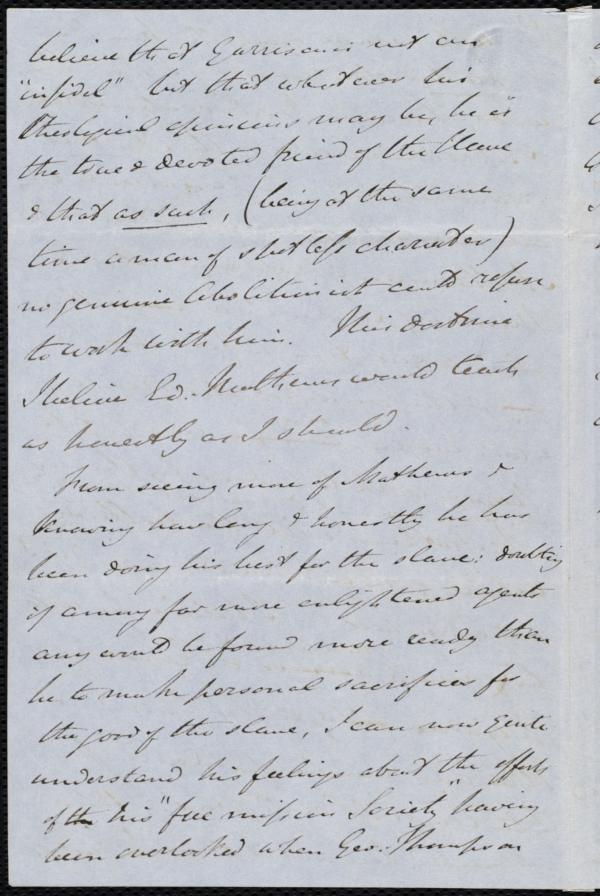 believe that Garrison is not an
"infidel" but that whatever his
theological opinions may be, he is
the true & devoted friend of the Slave
& that as such, (being at the same
time a man of spotless character)
no genuine Abolitionist could refuse
to work with him. This doctrine
I believe Ed. Mathews would teach
as honestly as I should.
From seeing more of Mathews &
knowing how long & honestly he has
been doing his best for the slave: doubting
if among far more enlightened agents
any would be found more ready than
he to make personal sacrifices for
the good of the slave, I can now quite
understand his feelings about the efforts
of the his "free mission Society" having
been overlooked when Geo. Thompson